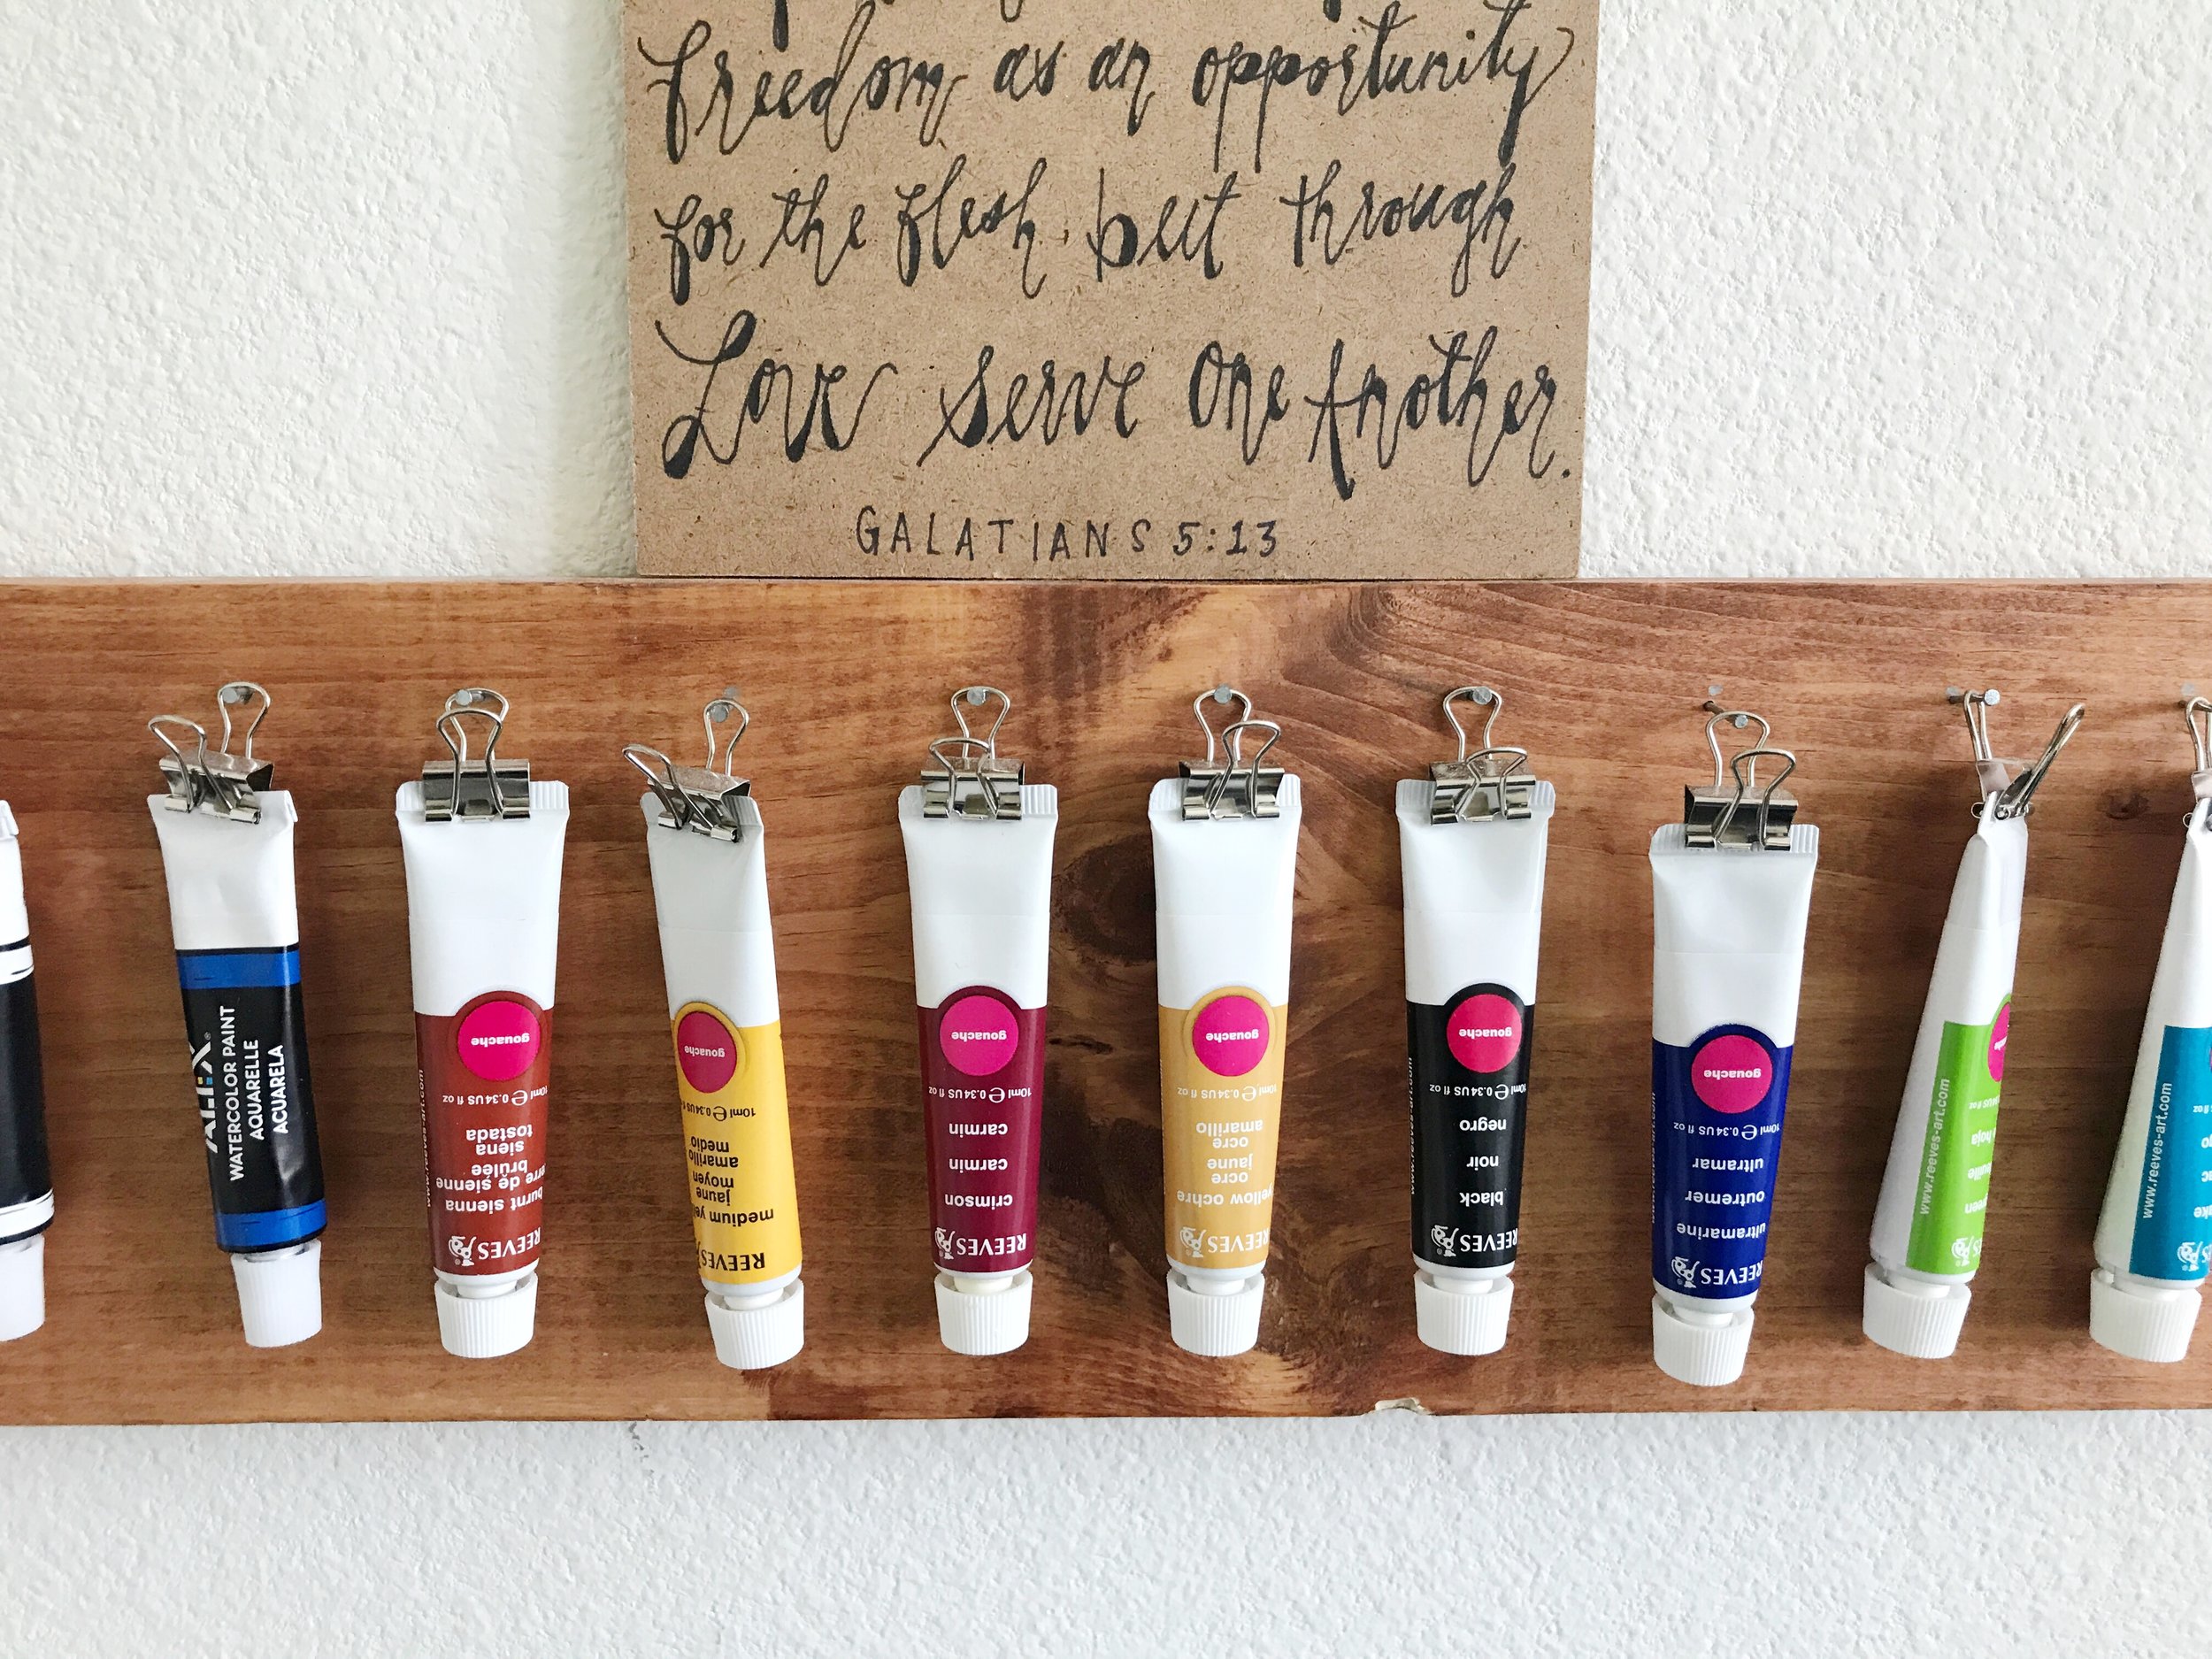 freedom as an opportunity
for the flesh, but through
Love serve One Another.
GALATIANS 5:13
WATERCOLOR PAINT
AQUARELLE
ACUARELA
gouache
10ml e 0.34 US fl oz
siena
tostada
brûlée
terre de sienne
burnt sienna
REEVES
gouache
10ml e 0.34 US
amarillo
medio
jaune
moyen
medium
REEVES
gouache
10ml e 0.34 US fl oz
carmin
carmin
crimson
REEVES
gouache
10ml e 0.34 US fl oz
ocre
amarillo
ocre
jaune
yellow ochre
REEVES
gouache
10ml e 0.34 US fl oz
negro
noir
black
REEVES
gouache
10ml e 0.34 US fl oz
ultramar
outremer
ultramarine
REEVES
www.reeves-art.com
hoja
www.reeves-art.com